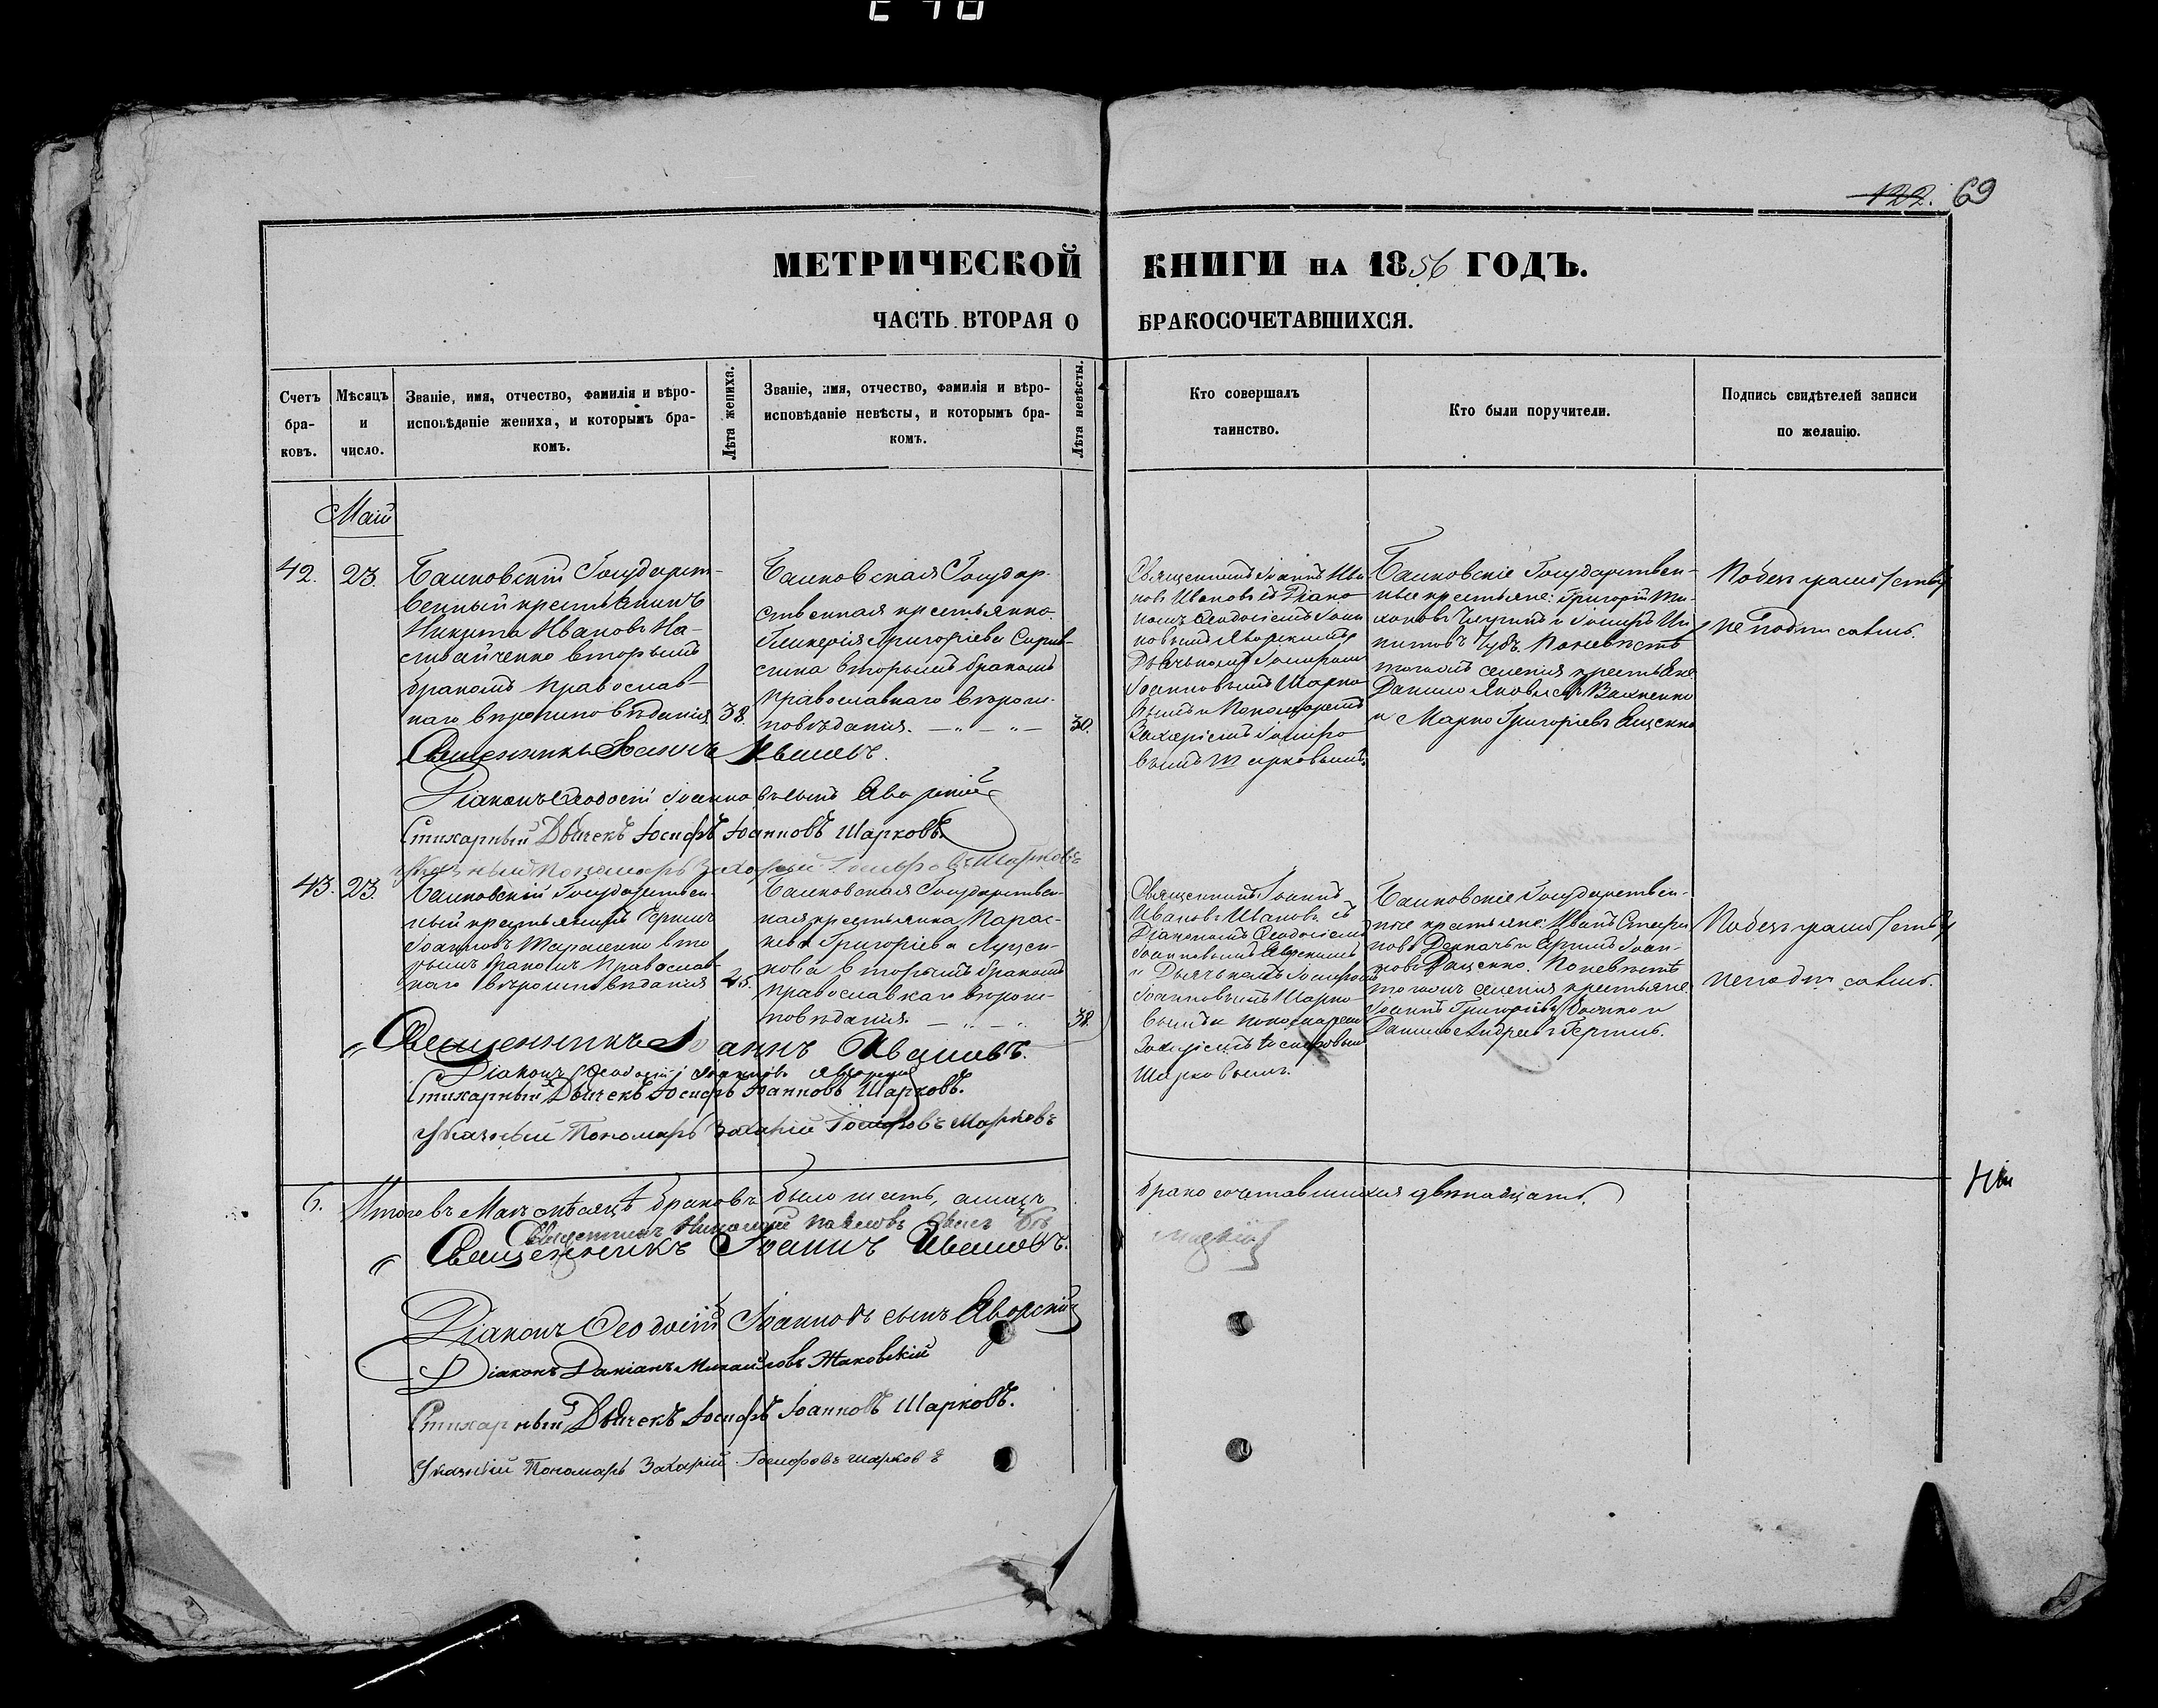 122. 69
МЕТРИЧЕСКОЙ КНИГИ НА 1856 ГОДЪ.
ЧАСТЬ ВТОРАЯ О БРАКОСОЧЕТАВШИХСЯ.
Счетъ бра-
ковъ.
Мѣсяцъ
и
число.
Званіе, имя, отчество, фамилія и вѣро-
исповѣданіе жениха, и которымъ бра-
комъ.
Лѣта жениха.
Званіе, имя, отчество, фамилія и вѣро-
исповѣданіе невѣсты, и которымъ бра-
комъ.
Лѣта невѣсты.
Кто совершалъ
таинство.
Кто были поручители.
Подпись свидѣтелей записи
по желанію.
Май
42. 23.
Государст-
венный крестьянинъ
Никита Ивановъ На-
ливайченко вторымъ
бракомъ православ-
наго вѣроисповѣданія
38.
Государ-
ственная крестьянка
Гликерія Григоріева
вторымъ бракомъ
православнаго вѣроис-
повѣданія.
30.
Священникъ Іоаннъ Ива-
новъ Ивановъ съ Діако-
номъ Ѳеодосіемъ Іоан-
новымъ Яворскимъ
Дьячькомъ Іосифомъ
Іоанновымъ Шарко-
вымъ и Пономаремъ
Захаріемъ Іосифо-
вымъ Шарковымъ.
Государствен-
ные крестьяне: Григорій
и Іосифъ
Чубъ. По невѣстѣ
тогожъ селенія крестьяне
Данило Яковлевъ
и Марко Григоріевъ Ященко
По безграмотству
не подписались.
Священникъ Іоаннъ Ивановъ.
Діаконъ Ѳеодосій Іоанновъ сынъ Яворскій
Стихарный Дьячекъ Іосифъ Іоанновъ Шарковъ.
Указный Пономарь Захарій Іосифовъ Шарковъ
43. 23.
Государствен-
ный крестьянинъ
Іоанновъ вто-
рымъ бракомъ православ-
наго вѣроисповѣданія
25.
Государствен-
ная крестьянка Парас-
кева Григоріева Луцен-
кова вторымъ бракомъ
православнаго вѣроис-
повѣданія.
38.
Священникъ Іоаннъ
Ивановъ Ивановъ съ
Діакономъ Ѳеодосіемъ
Іоанновымъ Яворскимъ
и Дьячькомъ Іосифомъ
Іоанновымъ Шарко-
вымъ и Пономаремъ
Захаріемъ Іосифовымъ
Шарковымъ.
Государствен-
ные крестьяне: Иванъ
Деркачь и Іоан-
новъ Даценко. По невѣстѣ
тогожъ селенія крестьяне
Іоаннъ Григоріевъ и
Данило Андреевъ
По безграмотству
не подписались.
Священникъ Іоаннъ Ивановъ.
Діаконъ Ѳеодосій Іоанновъ Яворскій
Стихарный Дьячекъ Іосифъ Іоанновъ Шарковъ.
Указный Пономарь Захарій Іосифовъ Шарковъ
6. Итого въ Маѣ мѣсяцѣ браковъ было шесть, а лицъ бракосочетавшихся двѣнадцать.
Священникъ Николай Павловъ сынъ
Священникъ Іоаннъ Ивановъ.
Діаконъ Ѳеодосій Іоанновъ сынъ Яворскій
Діаконъ Даміанъ Михайловъ Жаковскій
Стихарный Дьячекъ Іосифъ Іоанновъ Шарковъ.
Указный Пономарь Захарій Іосифовъ Шарковъ